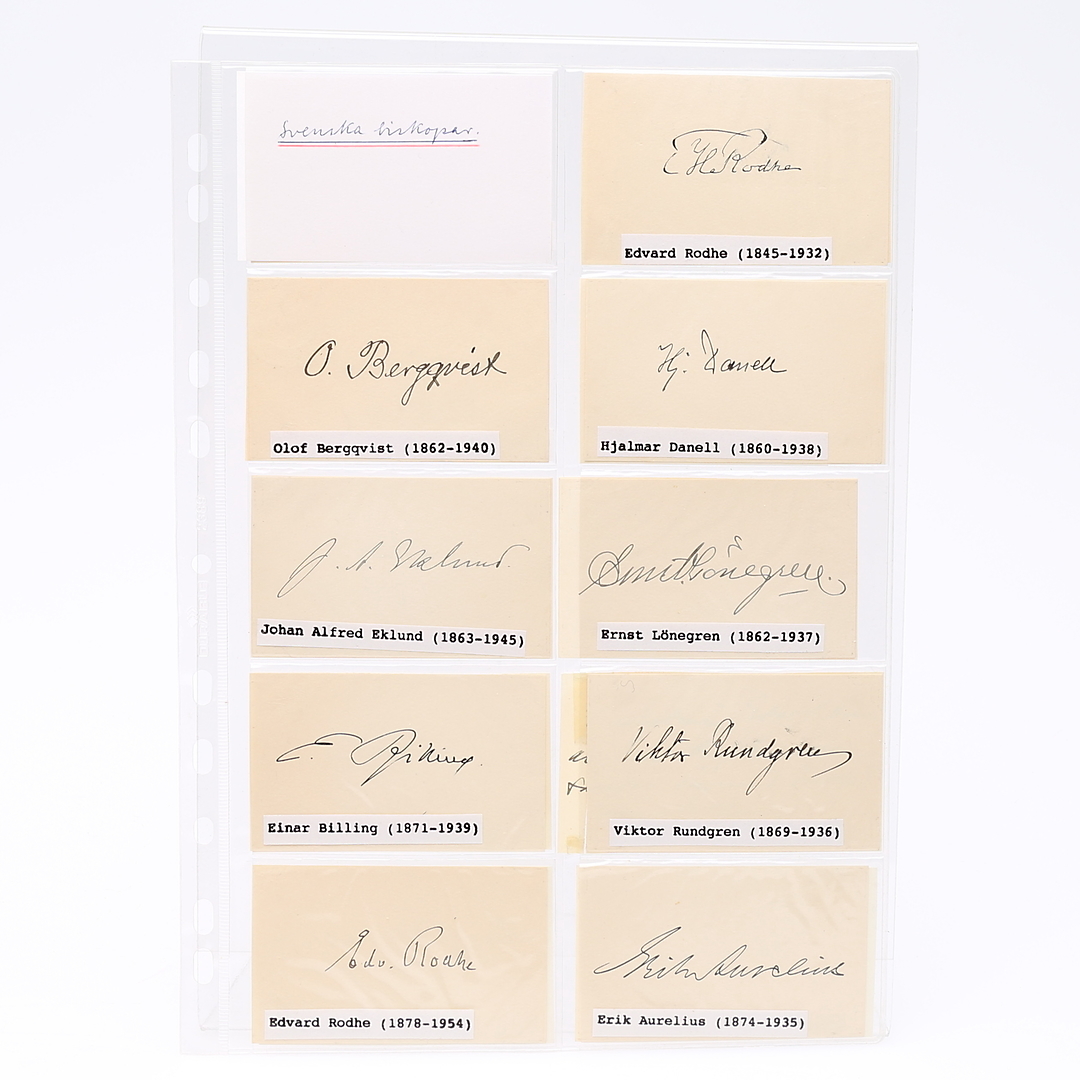 Svenska biskopar.
E H Rodhe
Edvard Rodhe (1845-1932)
O. Bergqvist
Olof Bergqvist (1862-1940)
Hj. Danell
Hjalmar Danell (1860-1938)
J. A. Eklund.
Johan Alfred Eklund (1863-1945)
Ernst Lönegren.
Ernst Lönegren (1862-1937)
E. Billing.
Einar Billing (1871-1939)
Viktor Rundgren
Viktor Rundgren (1869-1936)
Edv. Rodhe
Edvard Rodhe (1878-1954)
Erik Aurelius
Erik Aurelius (1874-1935)